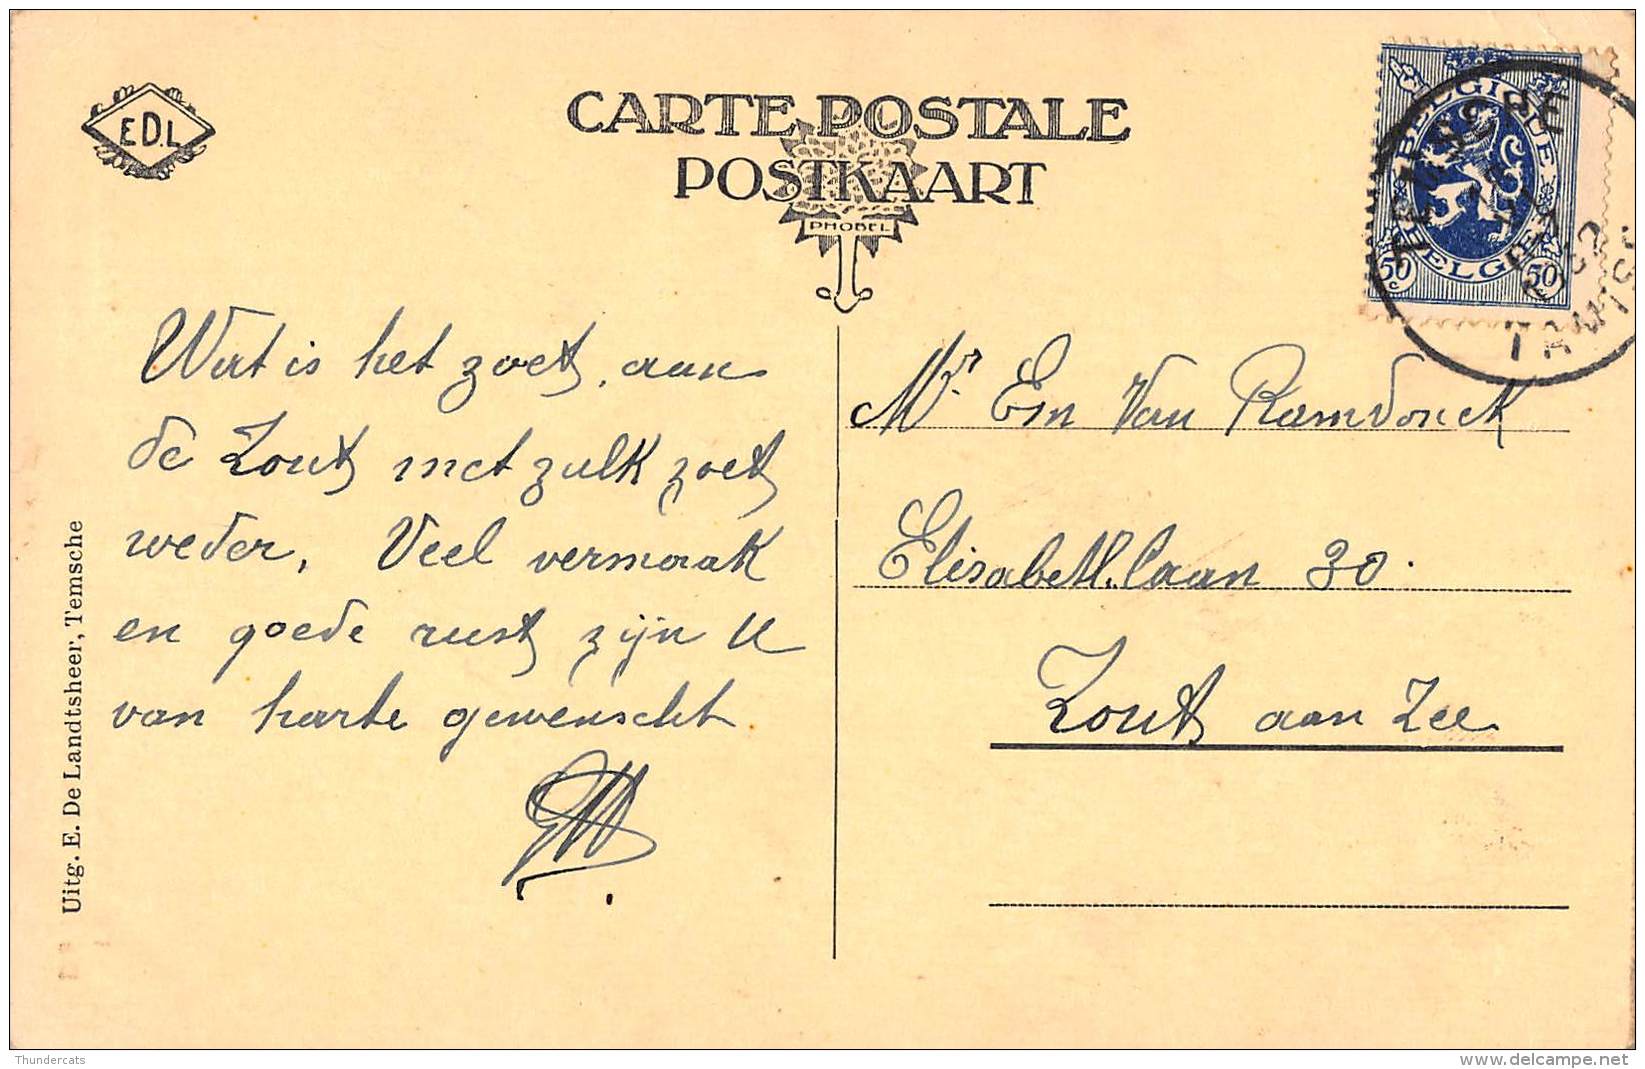 E.D.L
CARTE POSTALE
POSTKAART
PHOBEL
BELGIQUE
BELGIË
50 c
50 c
TEMSCHE
TAMISE
Wat is het zoet, aan
de Zout met zulk zoet
weder. Veel vermaak
en goede rust zijn U
van harte gewenscht
Mr. Em Van Ramdonck
Elisabethlaan 30.
Zout aan Zee
Uitg. E. De Landtsheer, Temsche
Thundercats
www.delcampe.net